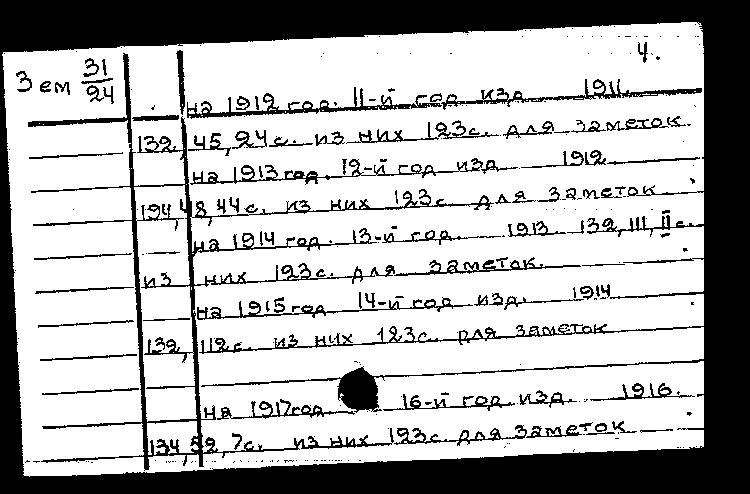 4.
3 ем 31
24
на 1912 год. 11-й год изд 1911.
132, 45, 24 с. из них 123с. для заметок
на 1913 год. 12-й год изд 1912.
194, 48, 44 с. из них 123с. для заметок
на 1914 год. 13-й год. 1913 132, III, II с.
из них 123с. для заметок.
на 1915 год 14-й год изд. 1914
132, 112с. из них 123с. для заметок
на 1917 год 16-й год изд. 1916.
134, 52, 7с. из них 123с. для заметок